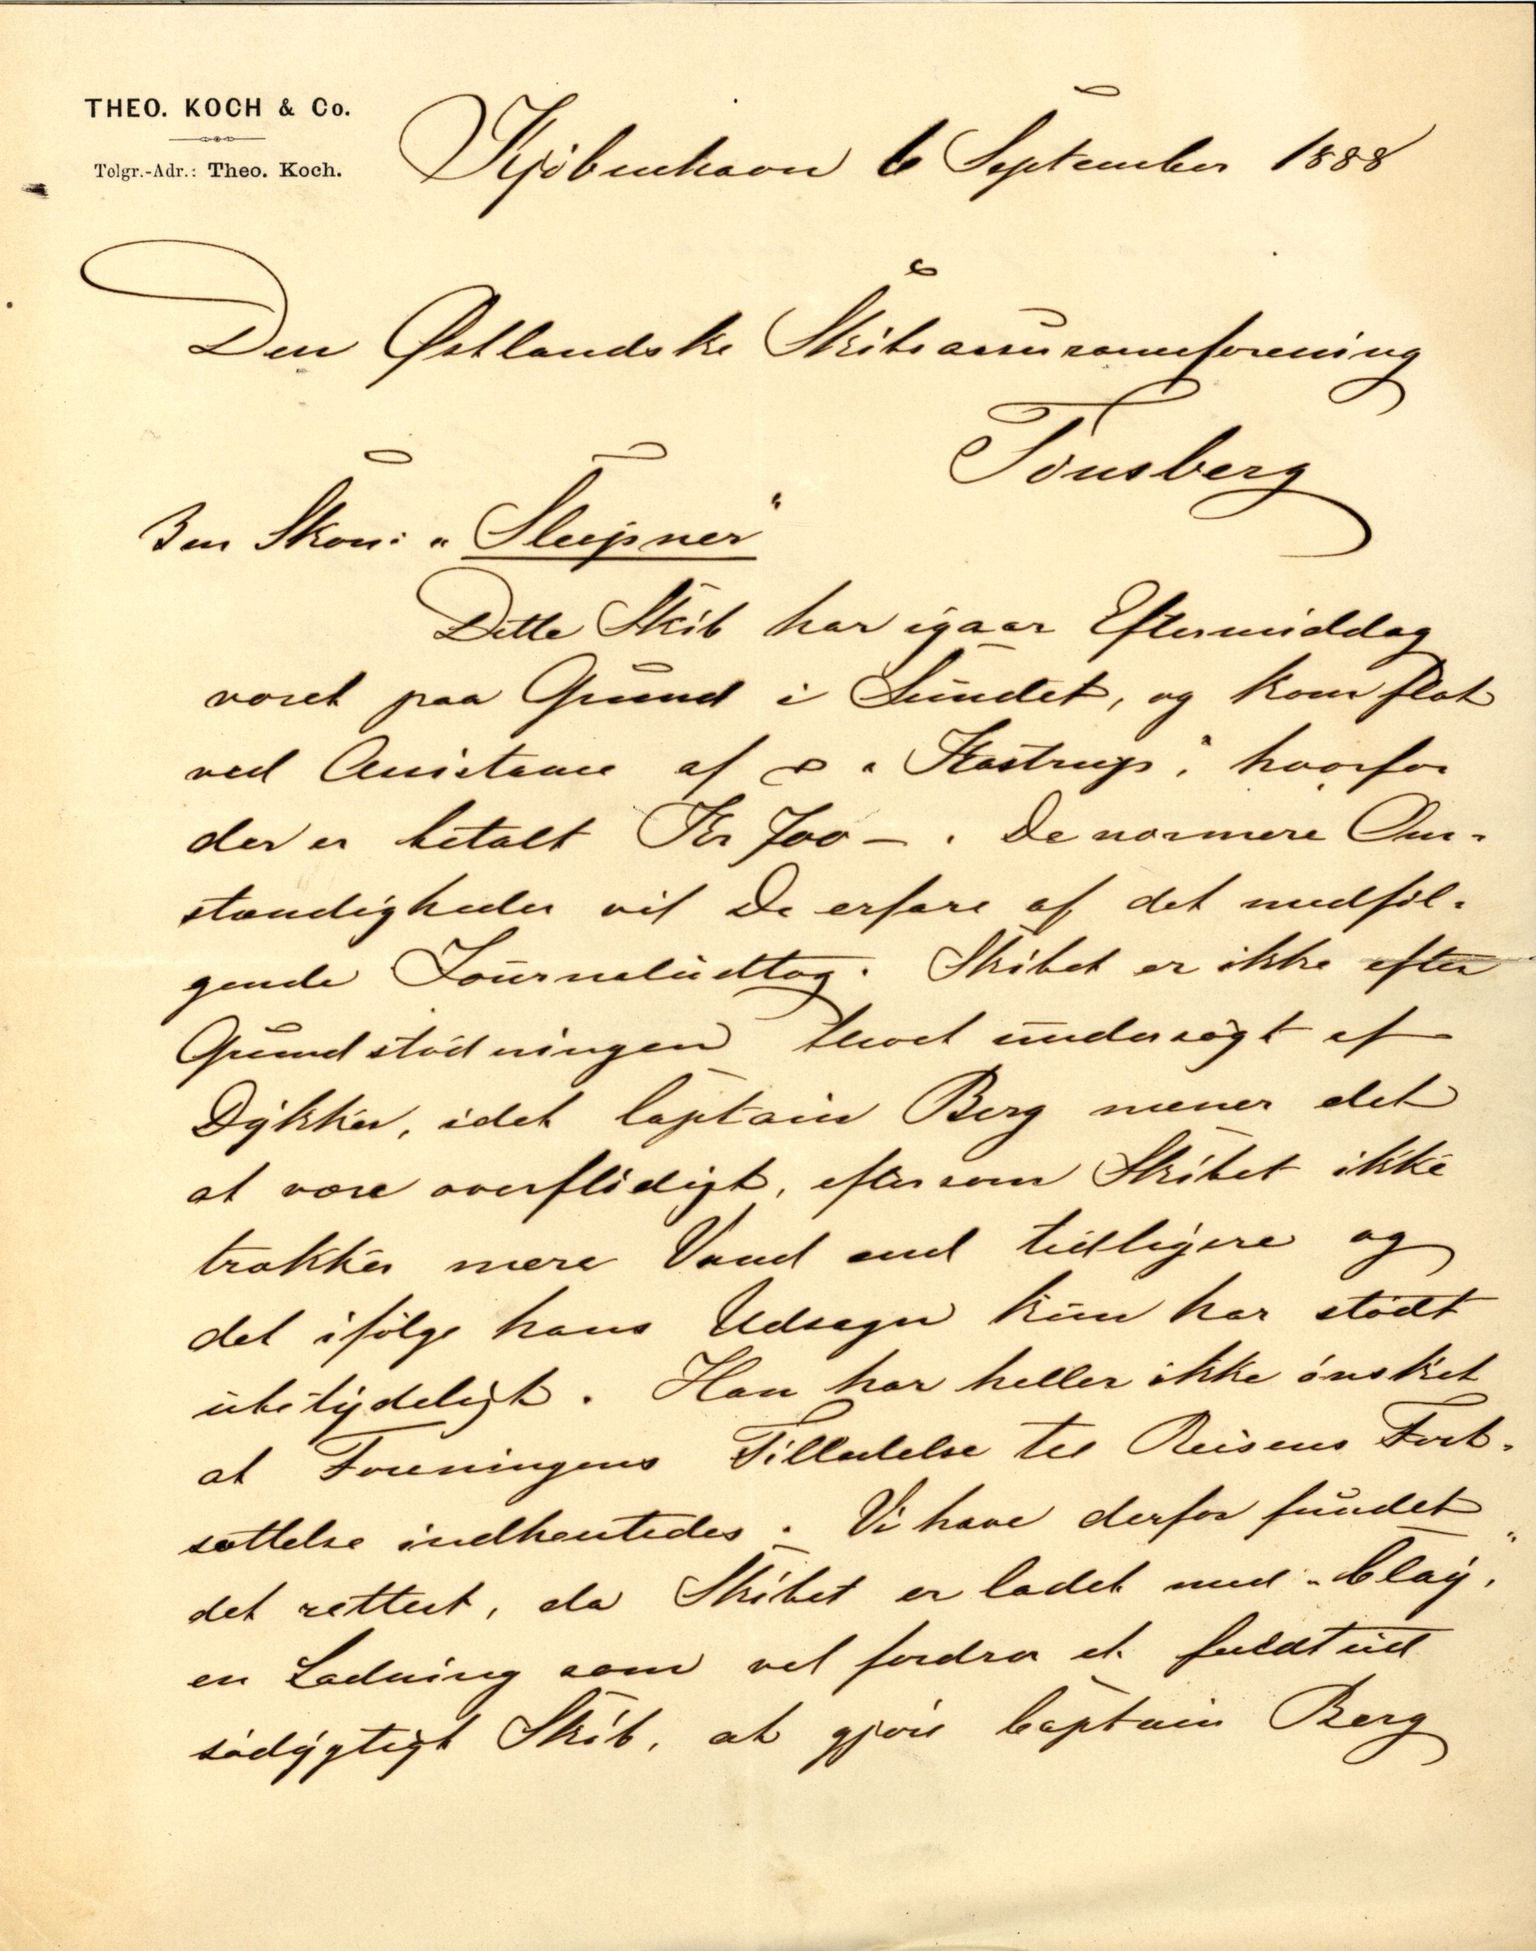 THEO. KOCH & Co.
Telgr.-Adr.: Theo. Koch.
Kjøbenhavn 6 September 1888
Den Østlandske Skibsassuranceforening
Tønsberg
3 m Skon: "Sleipner"
Dette Skib har igaar Eftermiddag
været paa Grund i Sundet, og kom flot
ved Assistance af "Kastrup", hvorfor
der er betalt Kr 700 — . De nærmere Om-
stændigheder vil De erfare af det medføl-
gende Journaludtog. Skibet er ikke efter
Grundstødningen blevet undersøgt af
Dykker, idet Captain Berg mener det
at være overflødigt, eftersom Skibet ikke
trækker mere Vand end tidligere og
det ifølge hans Udsagn kun har stødt
ubetydeligt. Han har heller ikke ønsket
at Foreningens Tilladelse til Reisens Fort-
sættelse indhentedes. Vi have derfor fundet
det rettest, da Skibet er ladet med "Clay",
en Ladning som vel fordrer et fuldtud
sødygtigt Skib, at gjøre Captain Berg